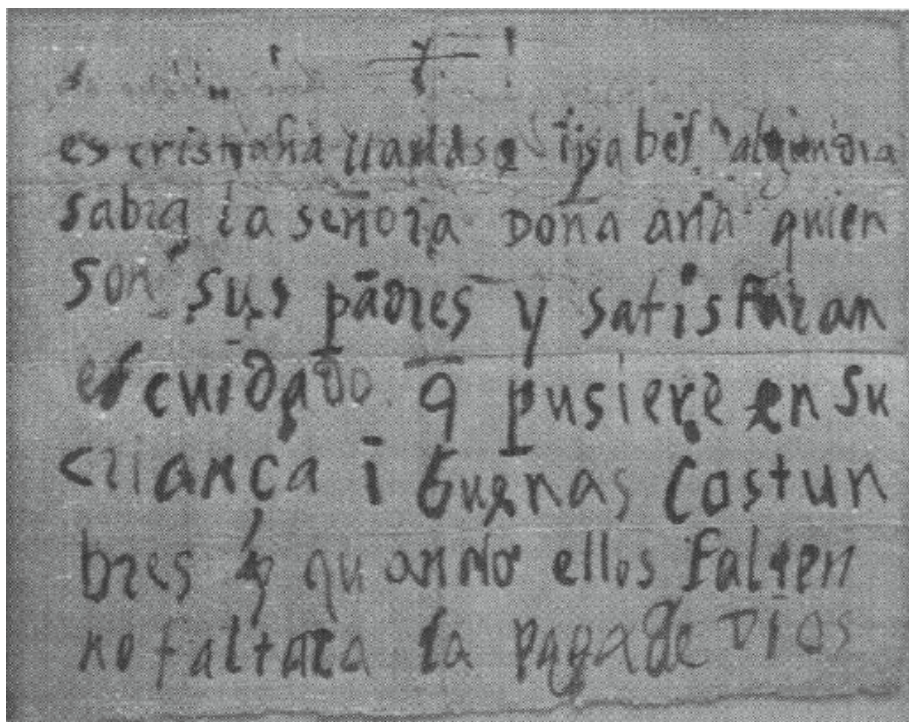 es cristiana llamase ysabel algun dia
sabra la señora Doña ana quien
son sus padres y satisfaran
el cuidado q̄ pusiere en su
criança i buenas costun
bres y quando ellos falten
no faltara la paga de Dios